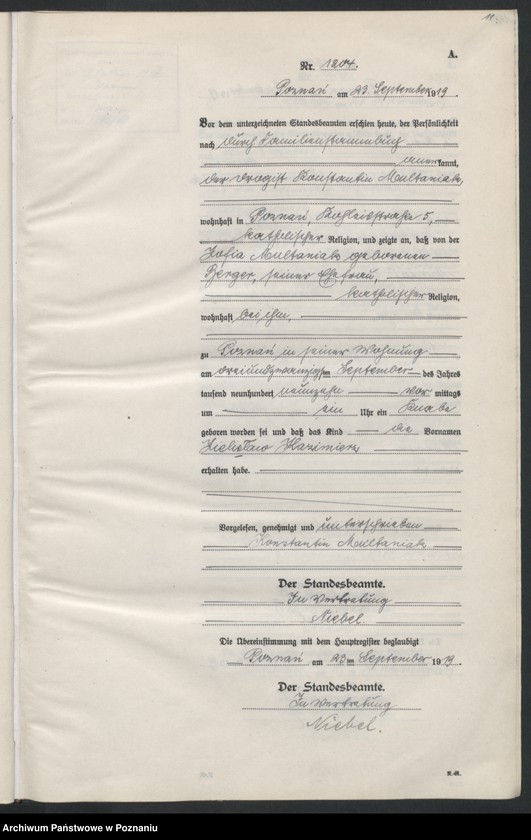 11.
A.
Nr. 1204.
Poznań am 23. September 1919.
Vor dem unterzeichneten Standesbeamten erschien heute, der Persönlichkeit
nach durch Familienstammbuch
anerkannt,
der Drogist Konstantin Multaniak,
wohnhaft in Poznań, 5,
katholischer Religion, und zeigte an, daß von der
Zofia Multaniak geborenen
Berger, seiner Ehefrau,
katholischer Religion,
wohnhaft bei ihm,
zu Poznań in seiner Wohnung
am dreiundzwanzigsten September des Jahres
tausend neunhundert neunzehn vor mittags
um ein Uhr ein Knabe
geboren worden sei und daß das Kind die Vornamen
Kazimierz
erhalten habe.
Vorgelesen, genehmigt und unterschrieben
Konstantin Multaniak
Der Standesbeamte.
In Vertretung
Niebel.
Die Übereinstimmung mit dem Hauptregister beglaubigt
Poznań am 23ten September 1919.
Der Standesbeamte.
In Vertretung
Niebel.
Archiwum Państwowe w Poznaniu